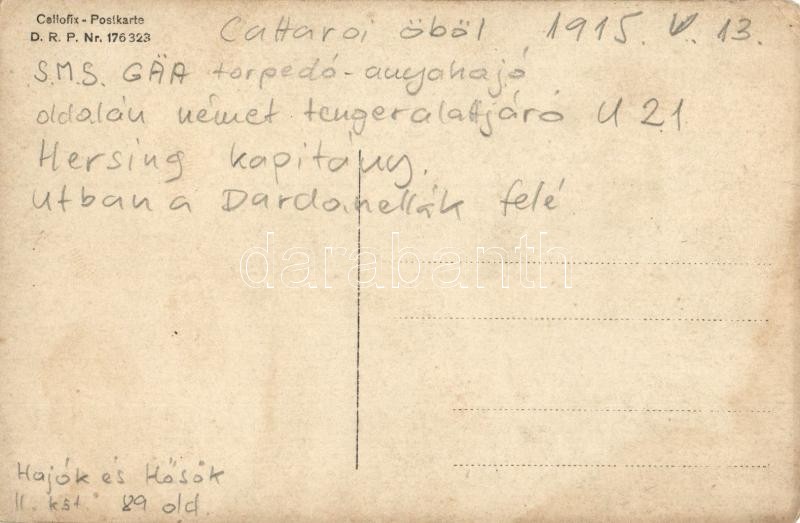 Cellofix - Postkarte
D. R. P. Nr. 176323
Cattaroi öböl 1915. V. 13.
S.M.S. GÄA torpedó-anyahajó
oldalán német tengeralattjáró U 21
Hersing kapitány.
Utban a Dardanellák felé
darabanth
Hajók és Hősök
II. köt. 89 old.